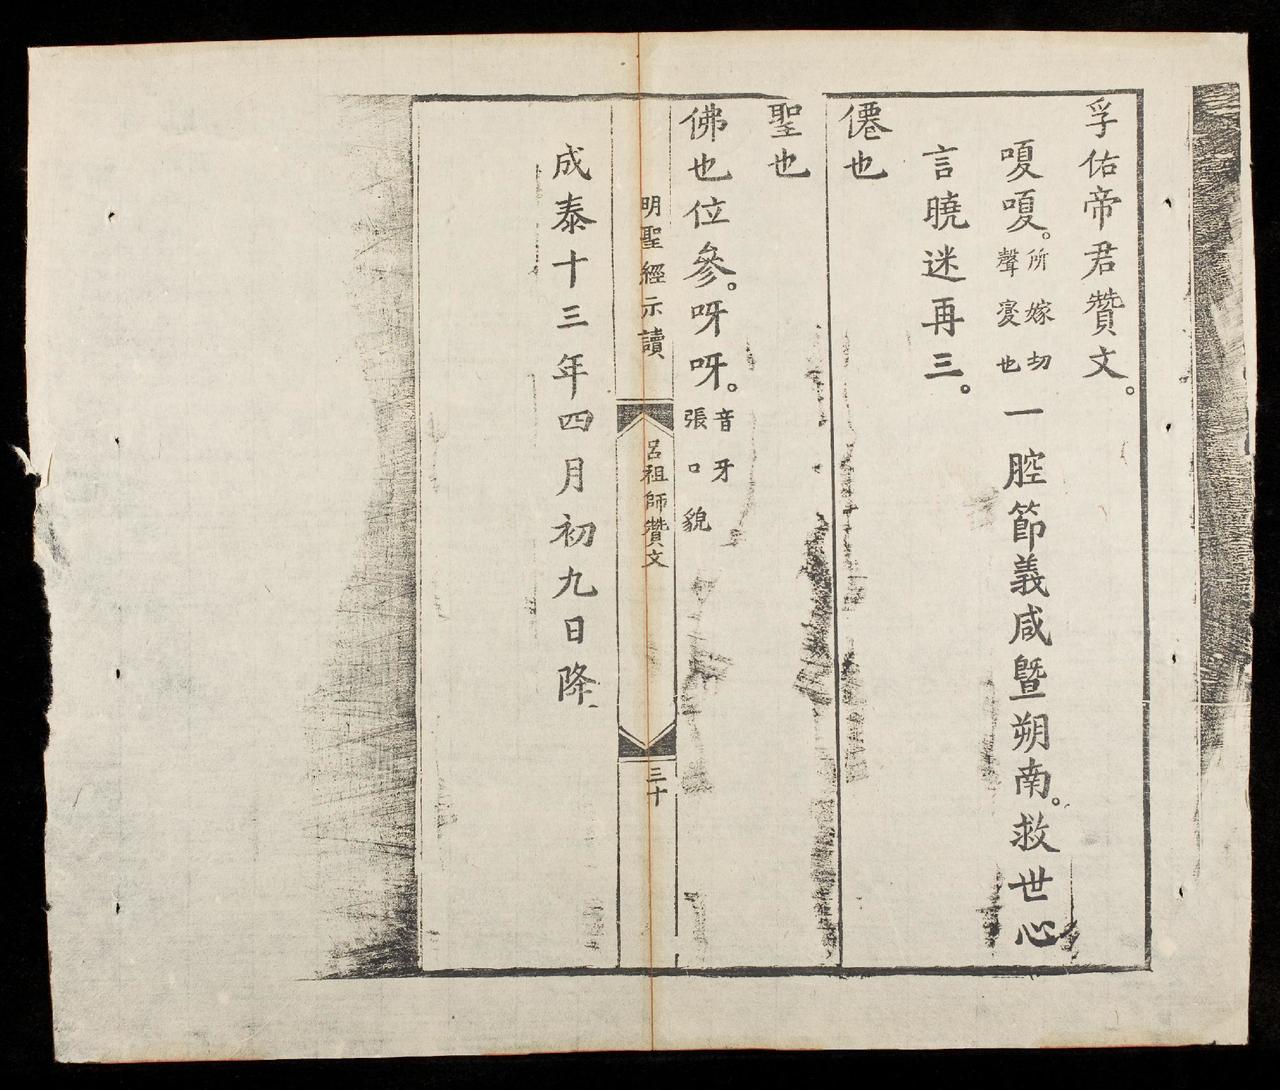 孚佑帝君贊文。
嗄嗄。所嫁切聲變也一腔節義咸暨朔南。救世心
言曉迷再三。
僊也
聖也
佛也位參。呀呀。音牙張口貌
明聖經示讀
呂祖師贊文
三十
成泰十三年四月初九日降